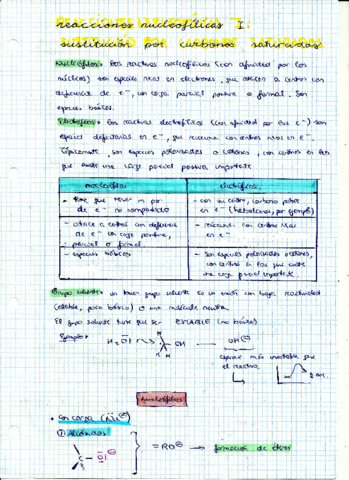 reacciones nucleofílicas I:
sustitución por carbonos saturados
Nucleófilos: los reactivos nucleofílicos (con afinidad por los
núcleos) son especies ricas en electrones, que atacan a centros con
deficiencia de e⁻, con carga parcial positiva o formal. Son
especies básicas.
Electrófilos: los reactivos electrofílicos (con afinidad por los e⁻) son
especies deficitarias en e⁻, que reaccionan con centros ricos en e⁻.
Típicamente, son especies polarizadas o cationes, con centros en los
que existe una carga parcial positiva importante
nucleófilos electrófilos
- tiene que haber 1 par
de e⁻ no compartido
- con un centro, carbono pobre
en e⁻ (haloalcanos, por ejemplo)
- ataca a centros con deficiencia
de e⁻ con carga positiva,
parcial o formal
- reacciona con centros ricos
en e⁻
- especies básicas
- Son especies polarizadas o cationes,
con centros en los que existe
una carga parcial importante.
Grupo saliente: un buen grupo saliente es un anión con baja reactividad
(estable, poco básico) o una molécula neutra.
El grupo saliente tiene que ser ESTABLE (no básico)
Ejemplo:
OH
H H
OH⁻
especie más inestable que
el reactivo.
Nucleófilos
• Con carga (Nu⁻)
① Alcóxidos
C O⁻
= RO⁻ → formación de éteres